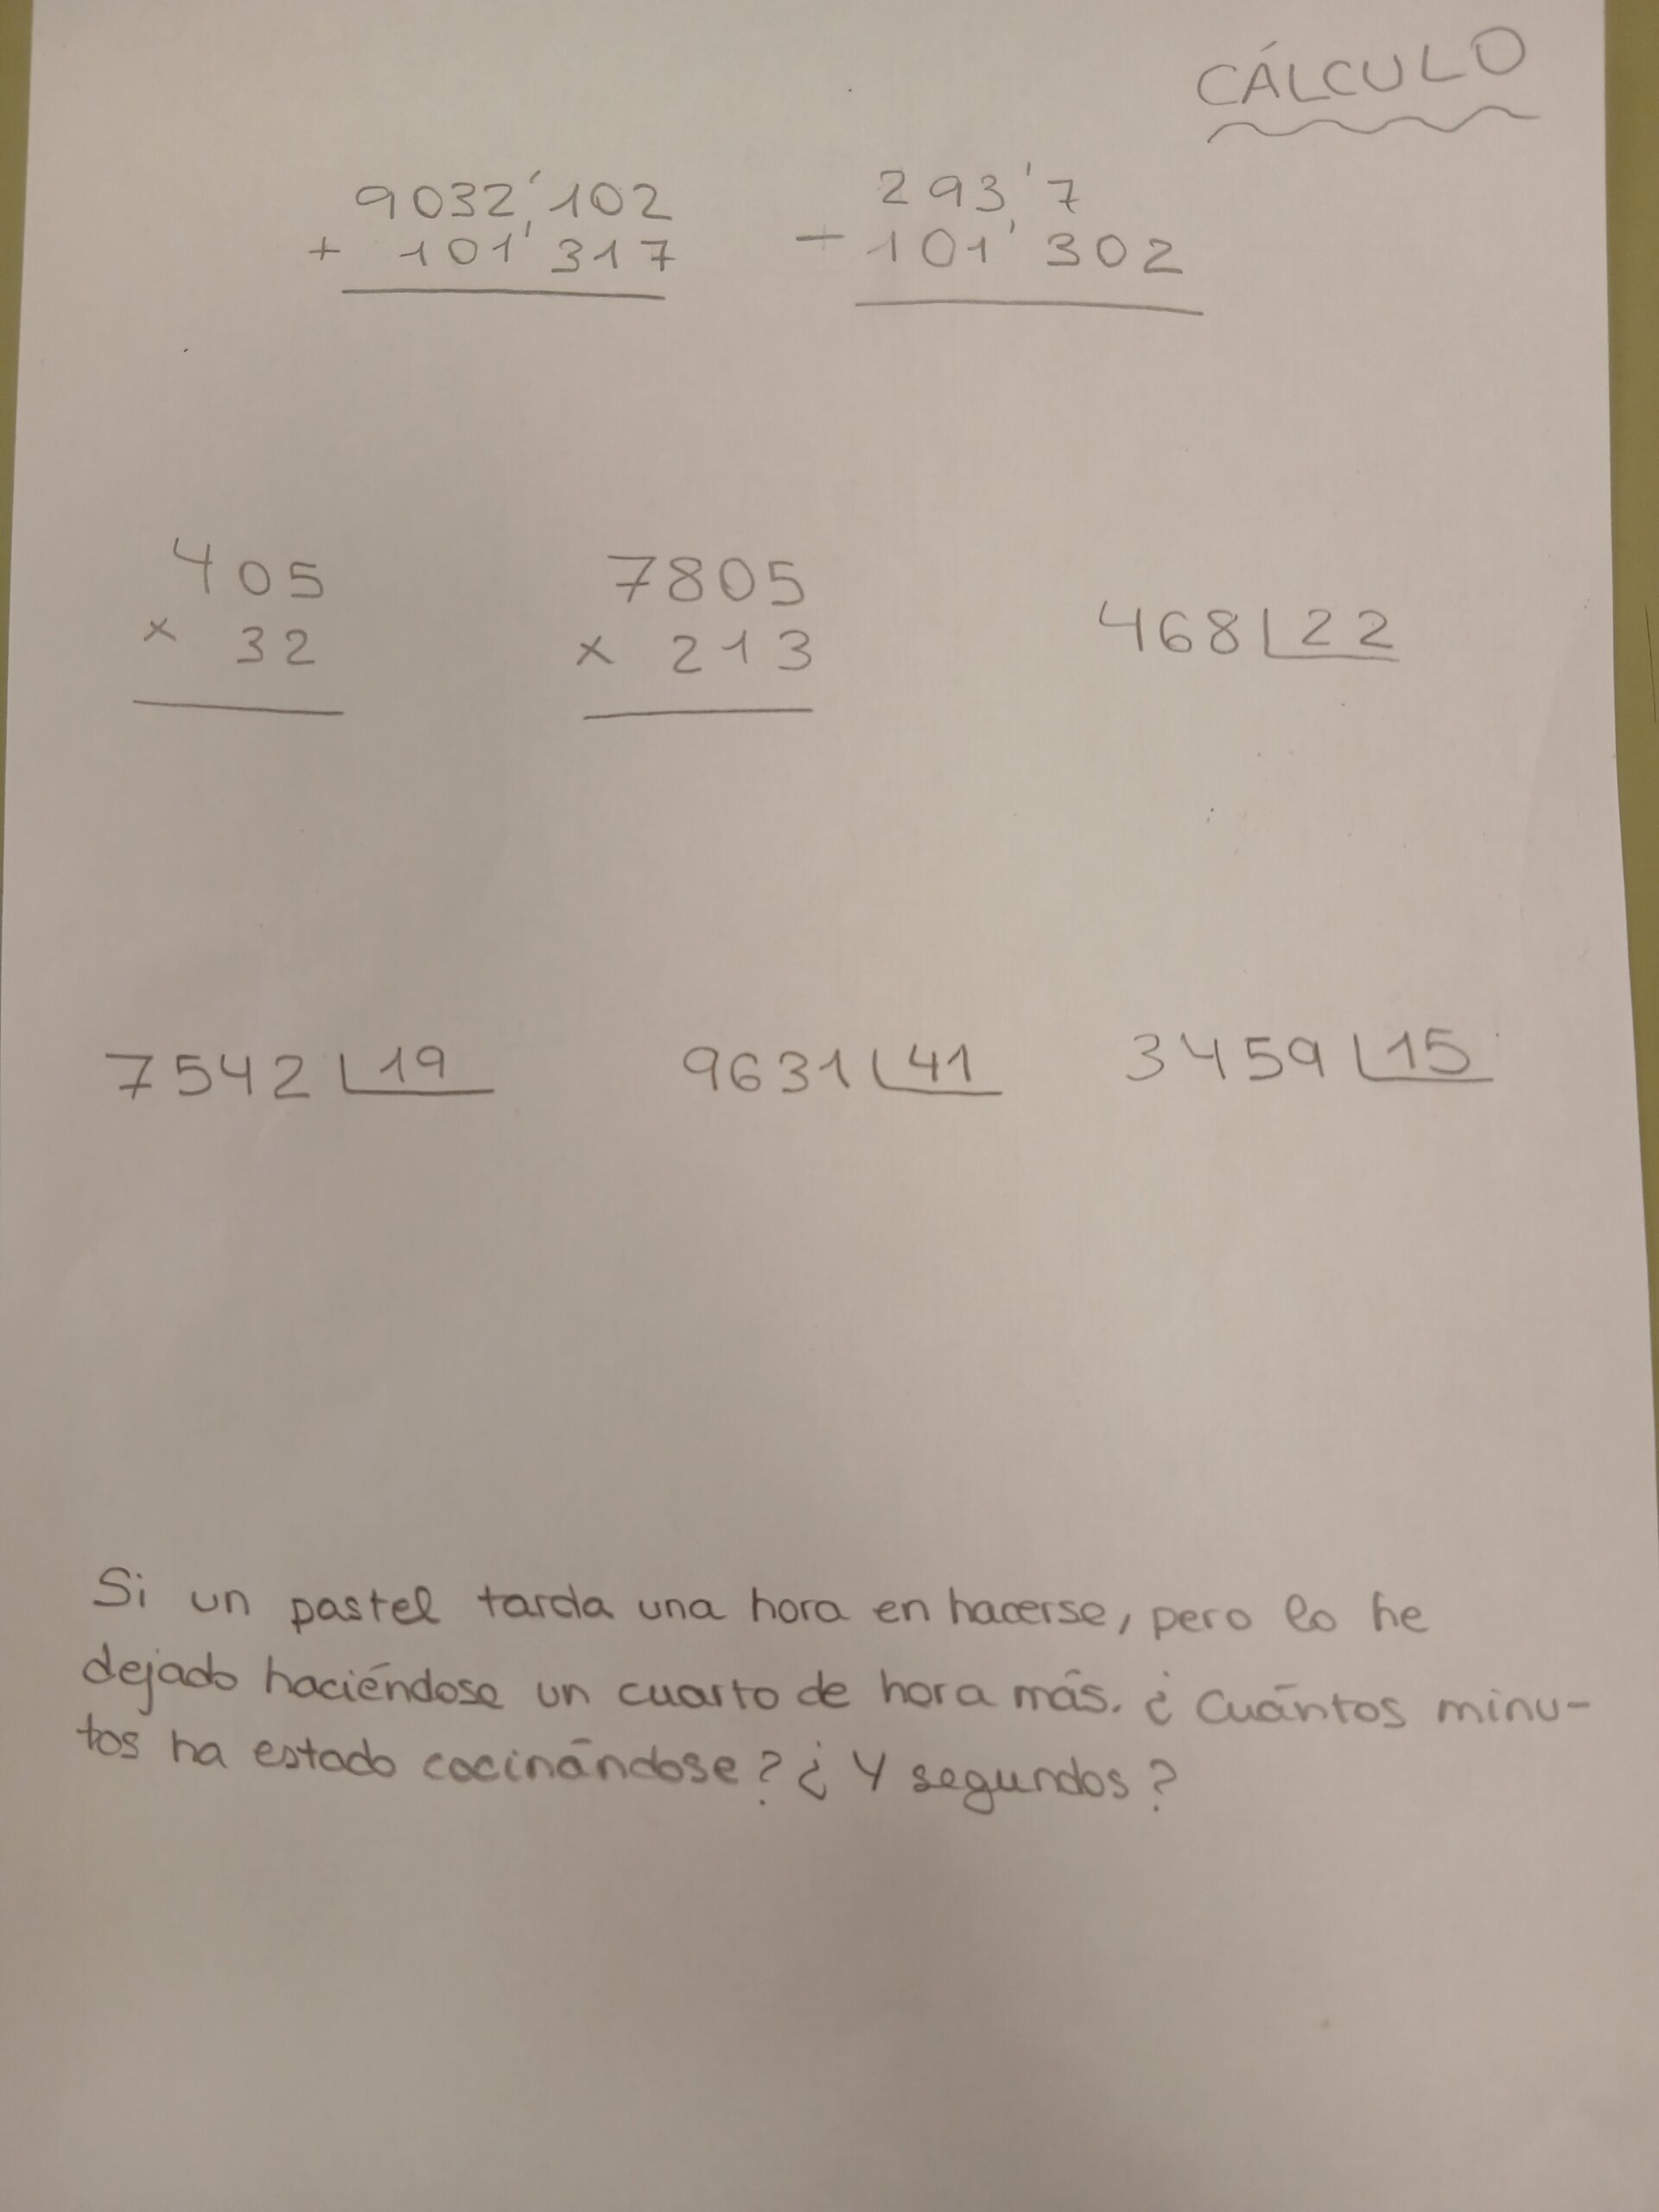 CÁLCULO
9032'102
+ 101'317
293'7
- 101'302
405
x 32
7805
x 213
468 22
7542 19
9631 41
3459 15
Si un pastel tarda una hora en hacerse, pero lo he
dejado haciéndose un cuarto de hora más. ¿Cuántos minu-
tos ha estado cocinándose? ¿Y segundos?